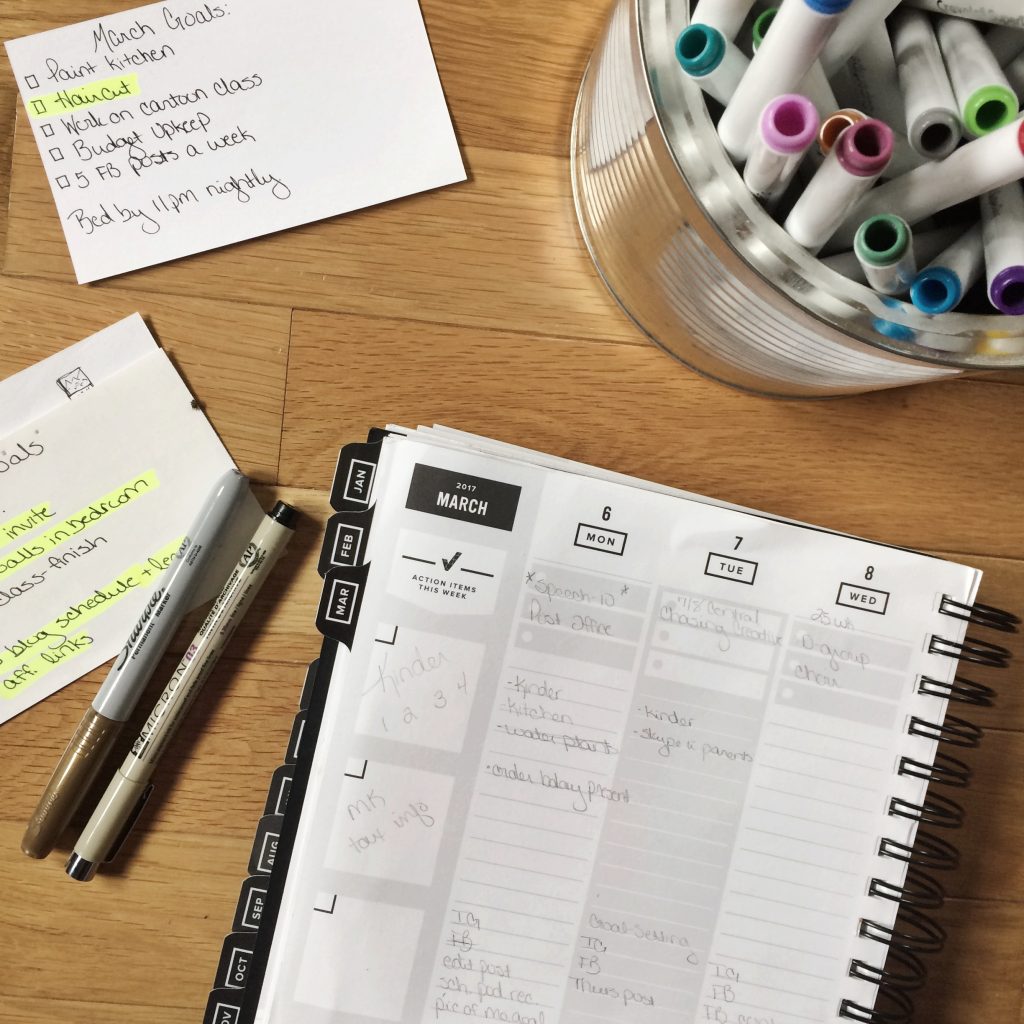 March Goals:
Paint kitchen
Haircut
Work on cartoon class
Budget Upkeep
5 FB posts a week
Bed by 11pm nightly
invite
in bedroom
class-finish
blog schedule +
aff. links
Sharpie
PERMANENT MARKER
MICRON
JAN
FEB
MAR
AUG
SEP
OCT
NOV
2017
MARCH
ACTION ITEMS
THIS WEEK
Kinder
1 2 3 4
MK
info
6
MON
*Speech-10*
Post Office
-Kinder
-Kitchen
-water plants
-order bday present
IG
FB
edit post
sch. pod rec.
pic of mo. goal
7
TUE
7/8 Central
Chasing Creative
-kinder
-Skype w parents
Goal-Setting
IG
FB
Thurs post
8
WED
25 wk
D group
IG
FB
FB